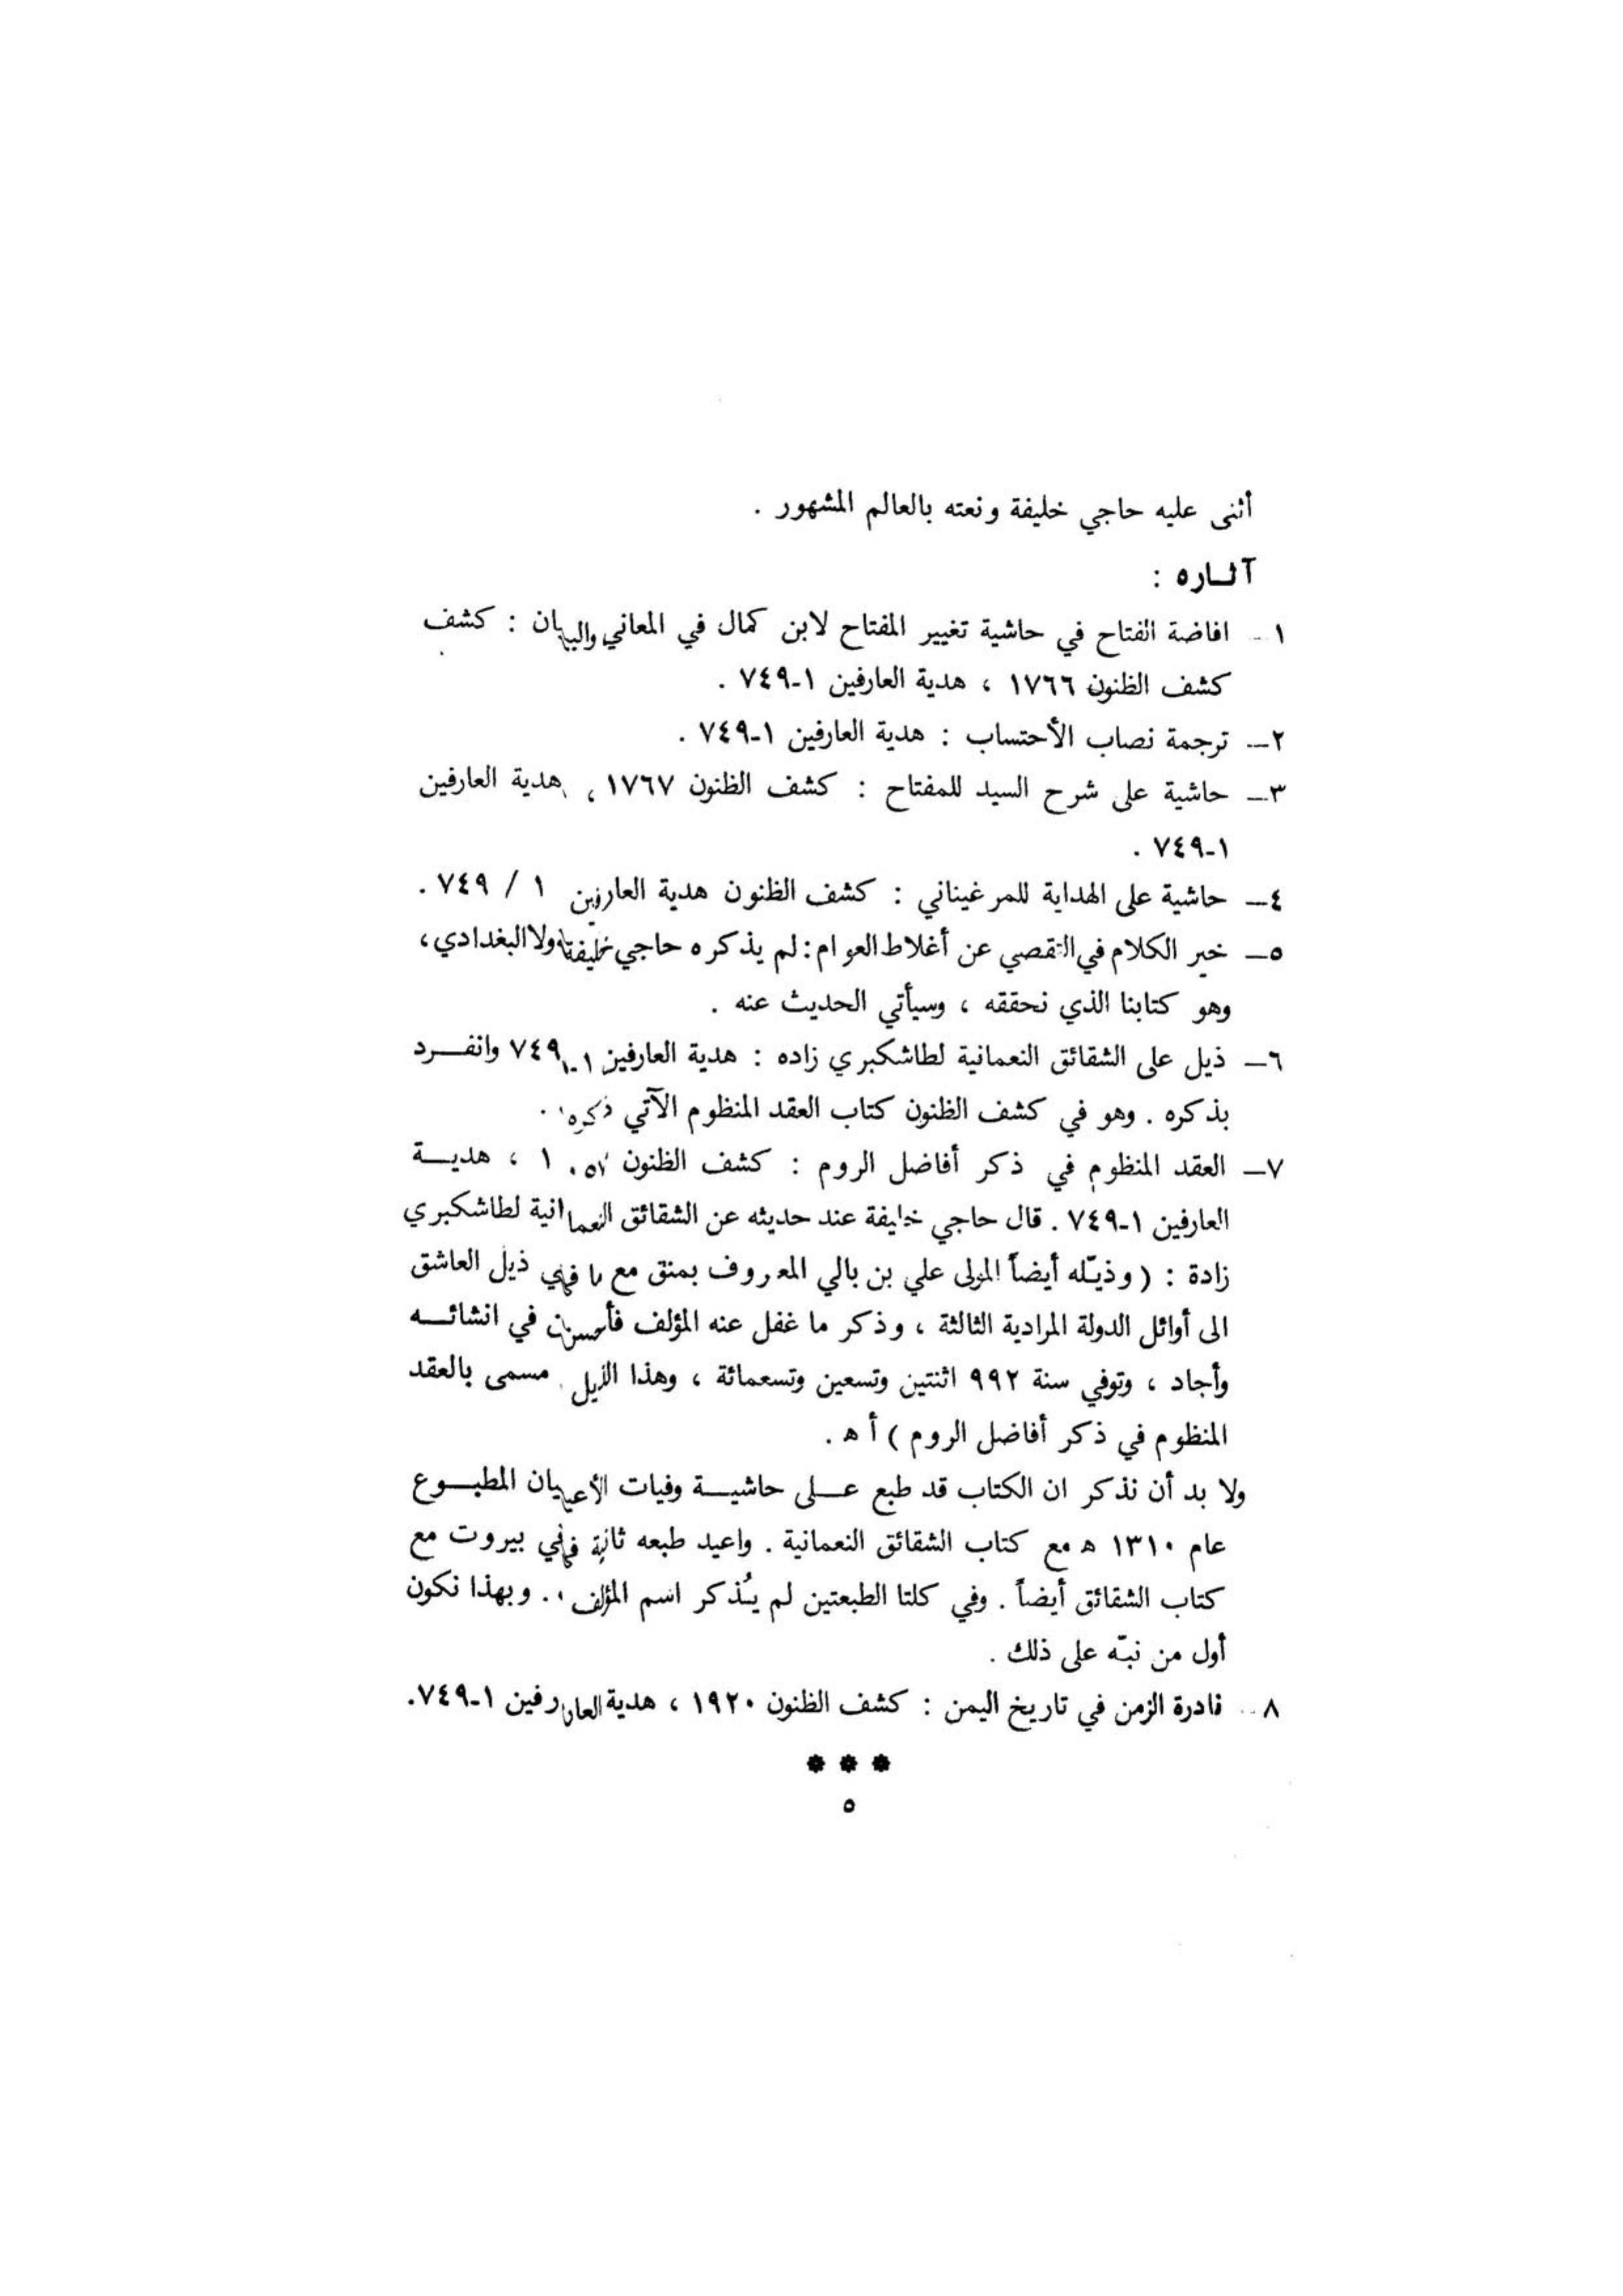 أثنى عليه حاجي خليفة ونعته بالعالم المشهور .
آثـاره :
١ - افاضة الفتاح في حاشية تغيير المفتاح لابن كمال في المعاني والبيان : كشف
كشف الظنون ١٧٦٦ ، هدية العارفين ١-٧٤٩ .
٢ - ترجمة نصاب الأحتساب : هدية العارفين ١-٧٤٩ .
٣ - حاشية على شرح السيد للمفتاح : كشف الظنون ١٧٦٧ ، هدية العارفين
١-٧٤٩ .
٤ - حاشية على الهداية للمرغيناني : كشف الظنون هدية العارفين ١ / ٧٤٩ .
٥ - خير الكلام في التقصي عن أغلاط العوام : لم يذكره حاجي خليفة ولا البغدادي ،
وهو كتابنا الذي نحققه ، وسيأتي الحديث عنه .
٦ - ذيل على الشقائق النعمانية لطاشكبري زاده : هدية العارفين ١-٧٤٩ وانفـرد
بذكره . وهو في كشف الظنون كتاب العقد المنظوم الآتي ذكره .
٧ - العقد المنظوم في ذكر أفاضل الروم : كشف الظنون ، هديـة
العارفين ١-٧٤٩ . قال حاجي خليفة عند حديثه عن الشقائق النعمانية لطاشكبري
زادة : ( وذيّله أيضاً المولى علي بن بالي المعروف بمنق مع ما في ذيل العاشق
الى أوائل الدولة المرادية الثالثة ، وذكر ما غفل عنه المؤلف فأحسن في انشائـه
وأجاد ، وتوفي سنة ٩٩٢ اثنتين وتسعين وتسعمائة ، وهذا الذيل مسمى بالعقد
المنظوم في ذكر أفاضل الروم ) أ ه .
ولا بد أن نذكر ان الكتاب قد طبع عـلى حاشيـة وفيات الأعيان المطبـوع
عام ١٣١٠ ه مع كتاب الشقائق النعمانية . واعيد طبعه ثانية في بيروت مع
كتاب الشقائق أيضاً . وفي كلتا الطبعتين لم يُذكر اسم المؤلف . وبهذا نكون
أول من نبّه على ذلك .
٨ - نادرة الزمن في تاريخ اليمن : كشف الظنون ١٩٢٠ ، هدية العارفين ١-٧٤٩ .
* * *
٥